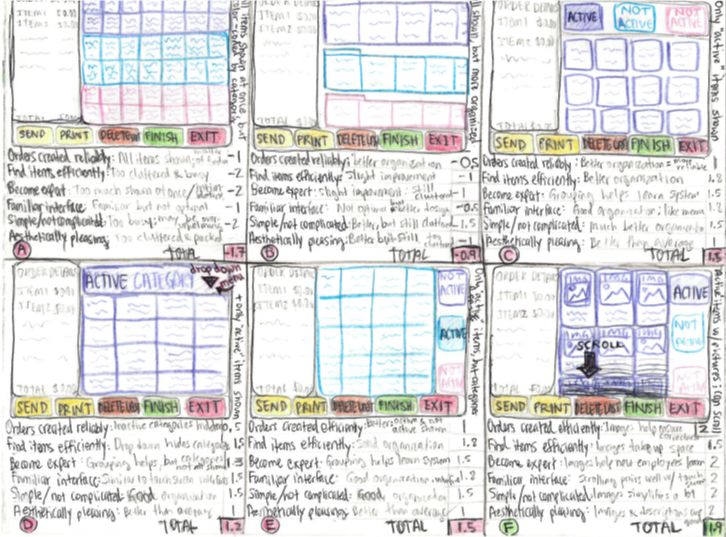 ORDER DETAILS
ITEM1 $0.00
ITEM2 $0.00
all items shown at once, but
SEND PRINT DELETE LAST FINISH EXIT
Orders created reliably: All items shown, -1
Find items efficiently: Too cluttered & busy -2
Become expert: Too much shown at once/ -2
Familiar interface: Familiar but not optimal -1
Simple/not complicated: Too busy; may be over- -2
Aesthetically pleasing: Too cluttered & packed
A TOTAL -1.7
all shown but more organized
SEND PRINT DELETE LAST FINISH EXIT
Orders created reliably: Better organization -0.5
Find items efficiently: Slight improvement -1
Become expert: Slight improvement, still cluttered -1
Familiar interface: Not optimal but better design -0.5
Simple/not complicated: Better, but still cluttered 1.5
Aesthetically pleasing: Better but still -1
B TOTAL -0.9
ORDER DETAILS
ITEM1 $0.00
ITEM2 $0.00
ACTIVE NOT ACTIVE NOT ACTIVE
Only "active" items shown
SEND PRINT DELETE LAST FINISH EXIT
Orders created reliably: Better organization = more
Find items efficiently: Better organization 1.8
Become expert: Grouping helps learn system 1.5
Familiar interface: Good organization; like menu 1.2
Simple/not complicated: Much better organization 1.5
Aesthetically pleasing: Better than average
C TOTAL 1.5
ORDER DETAILS
ITEM1 $0.00
ITEM2 $0.00
ACTIVE CATEGORY drop down menu
+ only "active" items shown
TOTAL $0.00
SEND PRINT DELETE LAST FINISH EXIT
Orders created reliably: Inactive categories hidden 0.5
Find items efficiently: Drop down hides categories 1.5
Become expert: Grouping helps, but categories 1.3
Familiar interface: Similar to 1.5
Simple/not complicated: Good organization 1.5
Aesthetically pleasing: Better than average 1
D TOTAL 1.2
ORDER DETAILS
ITEM1 $0.00
ITEM2 $0.00
NOT ACTIVE
ACTIVE
NOT ACTIVE
Only active items, but categories
TOTAL $0.00
SEND PRINT DELETE LAST FINISH EXIT
Orders created efficiently: better; active & not active shown 1
Find items efficiently: Good organization 1.8
Become expert: Grouping helps learn system 1.5
Familiar interface: Good organization 1.2
Simple/not complicated: Good organization 1.5
Aesthetically pleasing: Better than average 1
E TOTAL 1.5
ORDER DETAILS
ITEM1 $0.00
ITEM2 $0.00
IMG IMG IMG
ACTIVE
IMG IMG IMG
NOT ACTIVE
SCROLL
TOTAL $0.00
SEND PRINT DELETE LAST FINISH EXIT
Orders created efficiently: Images help ensure 2
Find items efficiently: Images take up space 1.5
Become expert: Images help new employees learn 2
Familiar interface: Scrolling pairs well w/ touch 2
Simple/not complicated: Images simplifies a bit 2
Aesthetically pleasing: Images & descriptions 2
F TOTAL 1.9